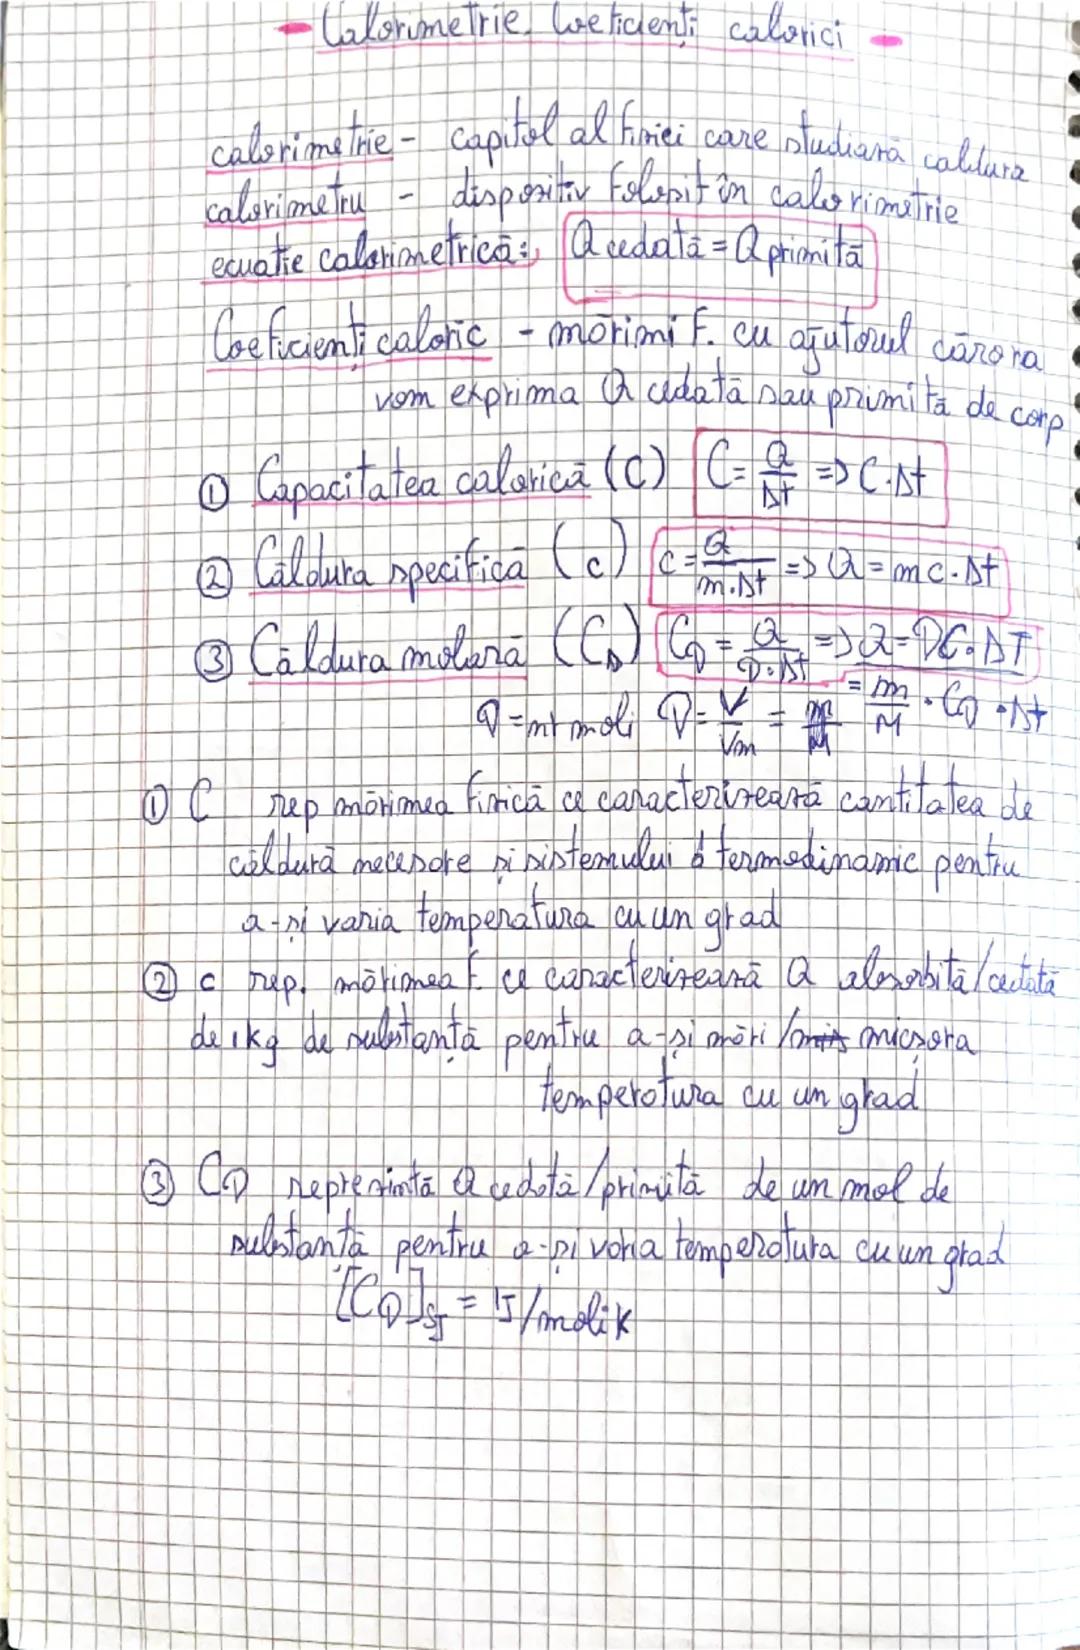 - Calorimetrie. Coeficienți calorici -
calorimetrie - capitol al fizicii care studiază caldura
calorimetru - dispozitiv folosit în calorimetrie
ecuație calorimetrică: Q cedată = Q primită
Coeficienți caloric - mărimi F. cu ajutorul cărora
vom exprima Q cedată sau primită de corp
① Capacitatea calorică (C) C = Q/Δt => C·Δt
② Căldura specifică (c) c = Q/m·Δt => Q = mc·Δt
③ Căldura molară (Cν) Cν = Q/ν·Δt => Q = νC·ΔT
ν = nr moli ν = V/Vm = m/M = m/M · Cν · Δt
① C rep mărimea fizică ce caracterizează cantitatea de
căldură necesare și sistemului termodinamic pentru
a-și varia temperatura cu un grad
② c rep. mărimea F. ce caracterizează Q absorbită/cedată
de 1kg de substanță pentru a-și mări / micșora
temperatura cu un grad
③ Cν reprezintă Q cedată/primită de un mol de
substanță pentru a-și varia temperatura cu un grad
[Cν]SI = 1J/moli K